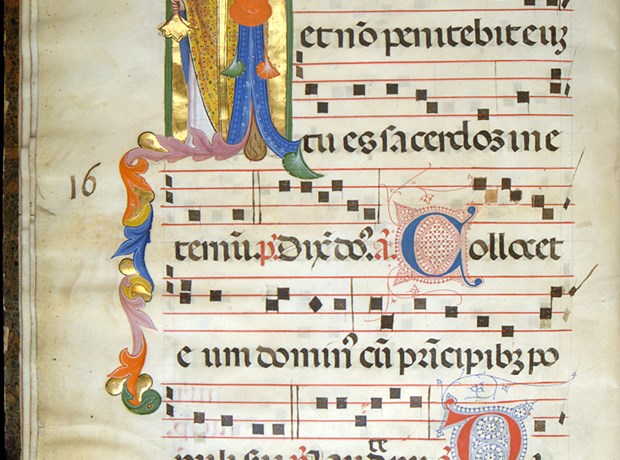 et nō penitebit euȝ
tu es sacerdos in e
16
ternū. p̄. Dix̄ do᷒. a̅. Collocet
e um domin᷒ cū prīcipibȝ po
te